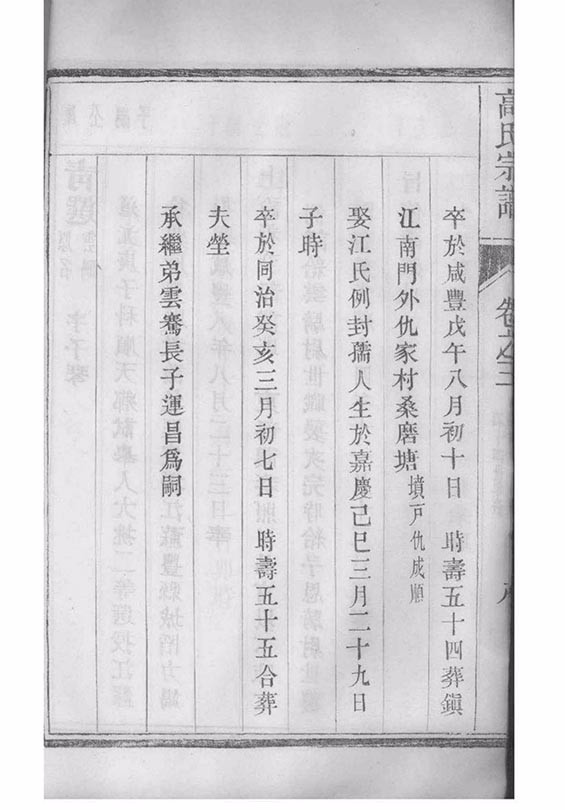 高氏宗譜
卷之三
卒於咸豐戊午八月初十日　時壽五十四葬鎮
江南門外仇家村桑磨塘墳戸仇成順
娶江氏例封孺人生於嘉慶己巳三月二十九日
子時
卒於同治癸亥三月初七日　時壽五十五合葬
夫塋
承繼弟雲騫長子運昌爲嗣